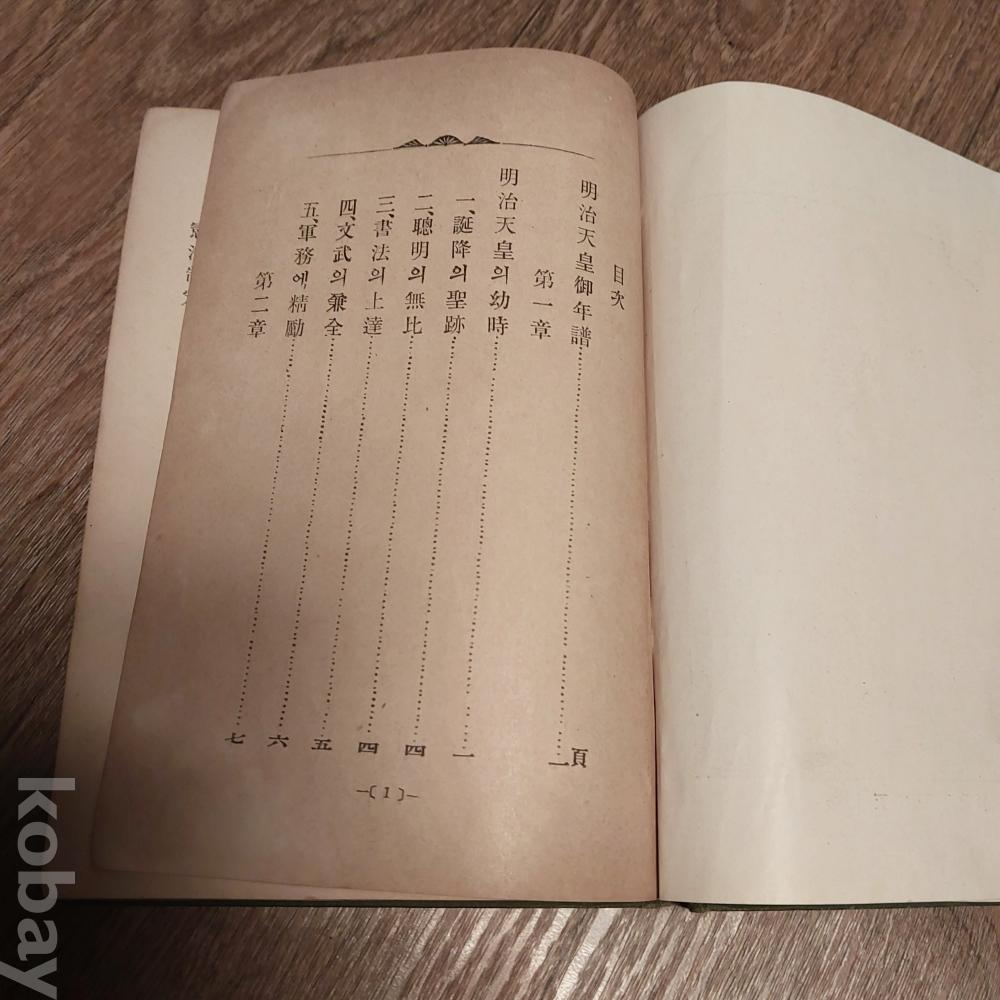 目次
頁
明治天皇御年譜……一
第一章
明治天皇의幼時……一
一、誕降의聖跡……四
二、聰明의無比……四
三、書法의上達……五
四、文武의兼全……六
五、軍務에精励……七
第二章
—(1)—
憲法
kobay